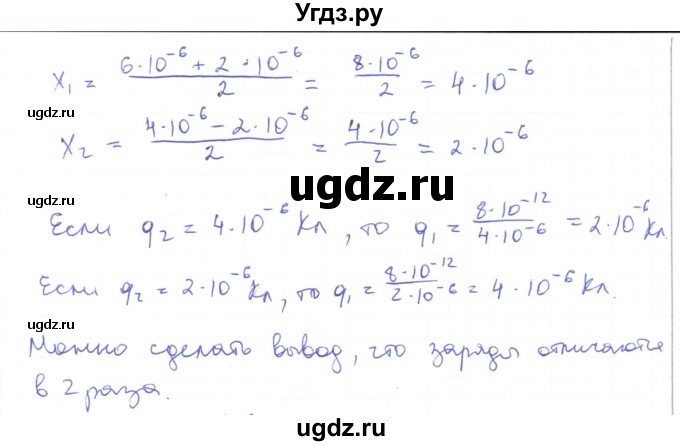 Угдз.ру
x₁ = (6·10⁻⁶ + 2·10⁻⁶)/2 = (8·10⁻⁶)/2 = 4·10⁻⁶
ugdz.ru
x₂ = (4·10⁻⁶ − 2·10⁻⁶)/2 = (4·10⁻⁶)/2 = 2·10⁻⁶
ugdz.ru
ugdz.ru
Если q₂ = 4·10⁻⁶ Кл, то q₁ = (8·10⁻¹²)/(4·10⁻⁶) = 2·10⁻⁶ Кл.
Если q₂ = 2·10⁻⁶ Кл, то q₁ = (8·10⁻¹²)/(2·10⁻⁶) = 4·10⁻⁶ Кл.
ugdz.ru
Можно сделать вывод, что заряды отличаются
в 2 раза.
ugdz.ru
ugdz.ru